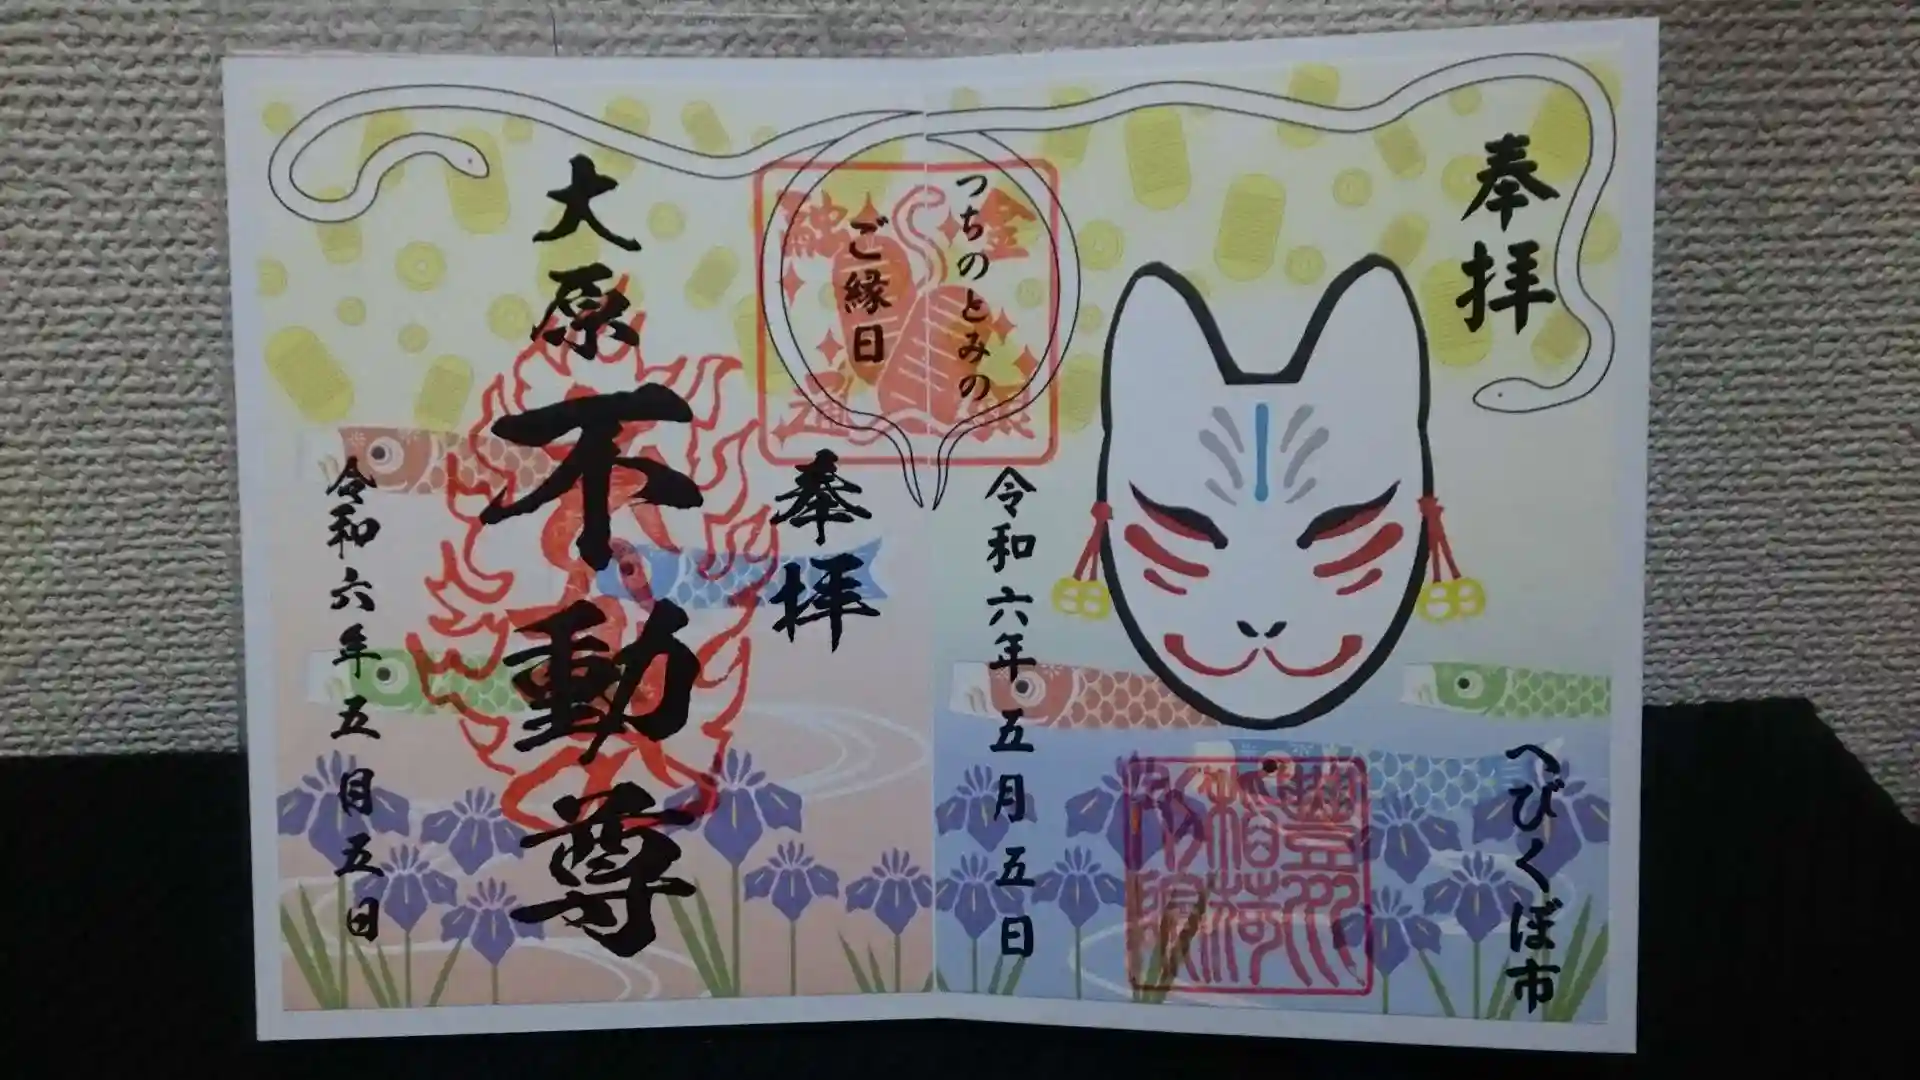 奉拝
つちのとみの
ご縁日
へびくぼ市
令和六年五月五日
金
融
通
豊川
稲荷
奉拝
大原不動尊
令和六年五月五日